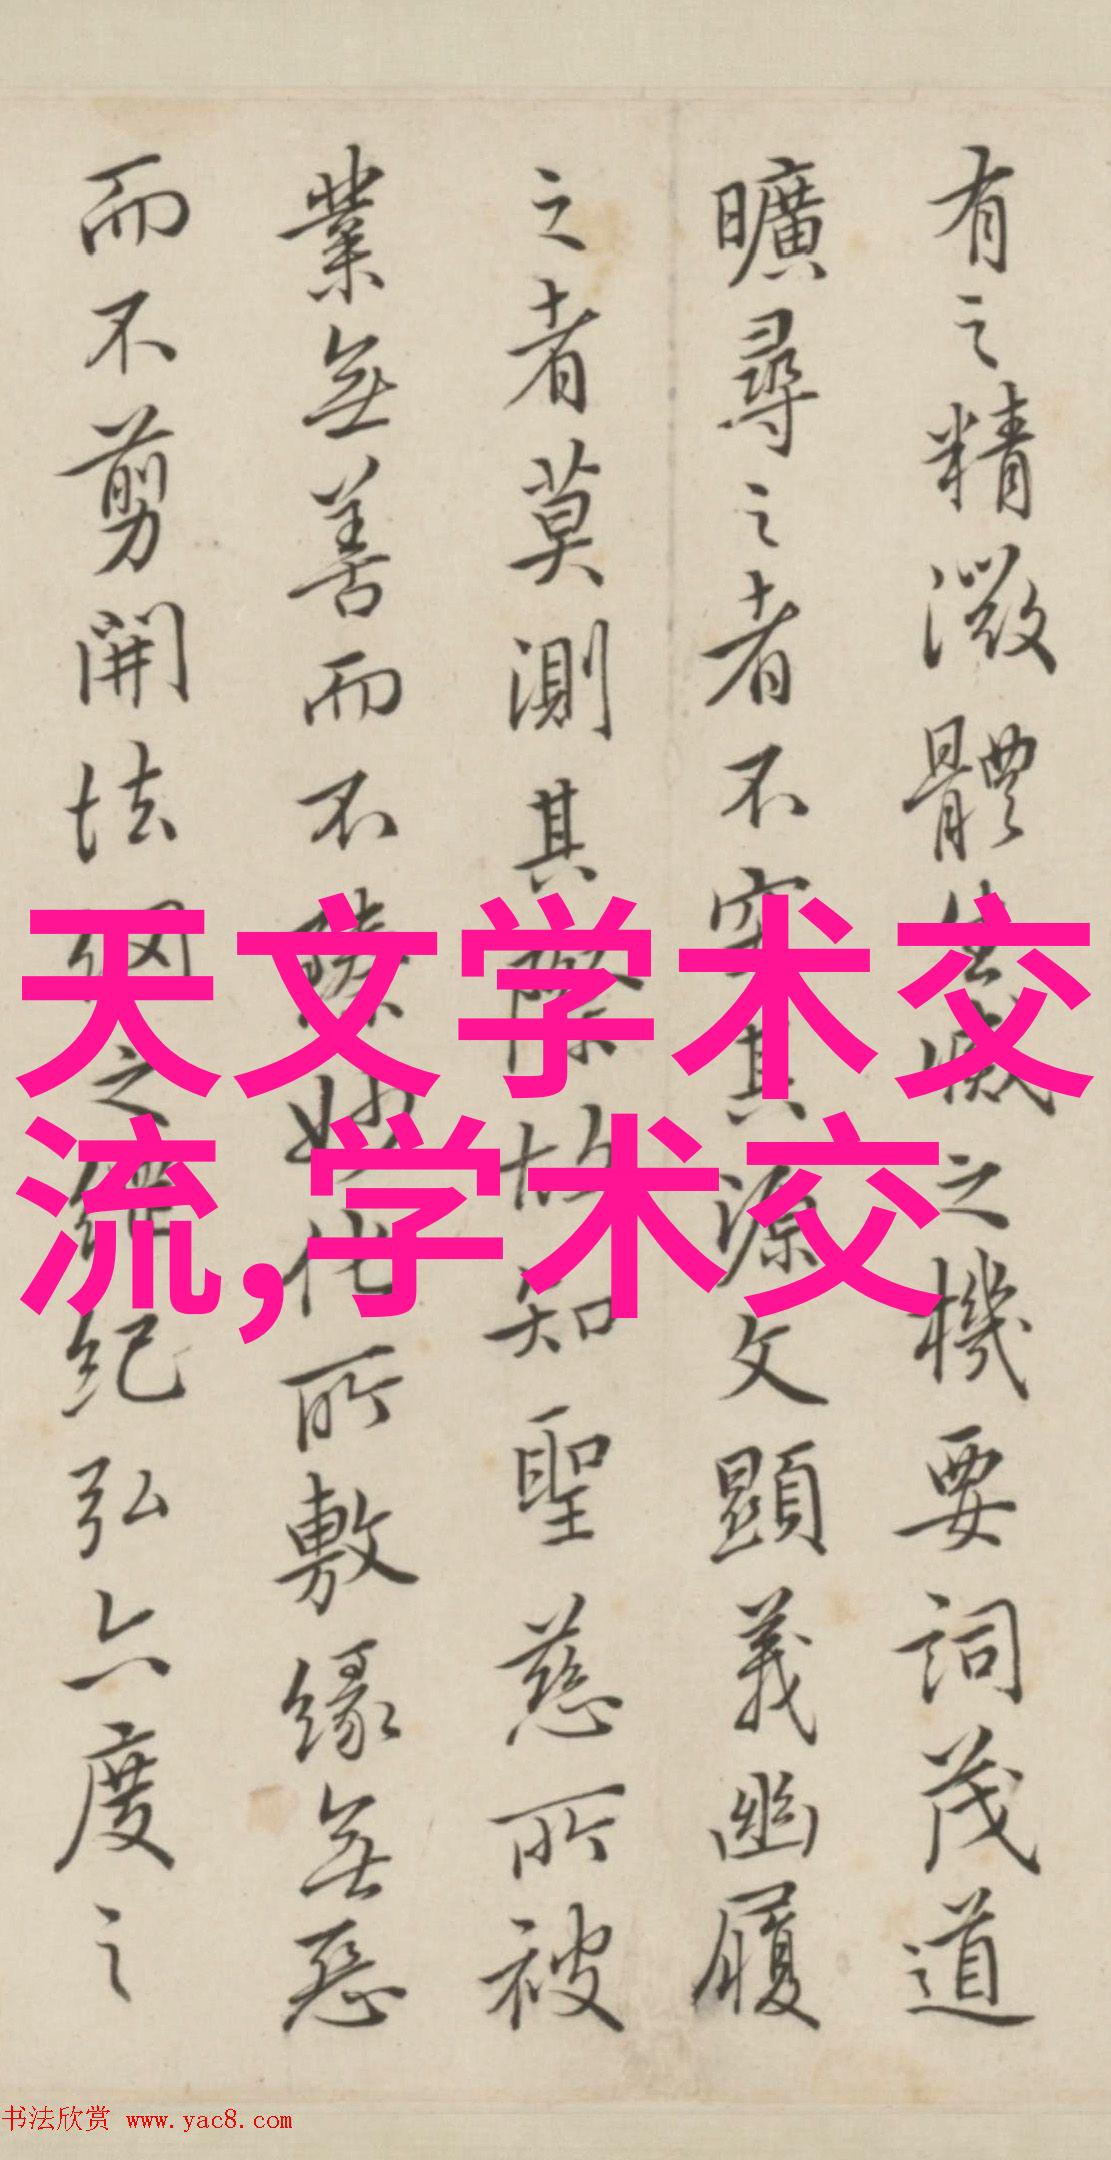 有之精微體生滅之機要詞茂道
曠尋之者不究其源文顯義幽履
之者莫測其際故知聖慈所被
業無善而不臻妙化所敷緣無惡
而不剪開法網之綱紀弘六度之
天文学术交
流,学术交
书法欣赏 www.yac8.com